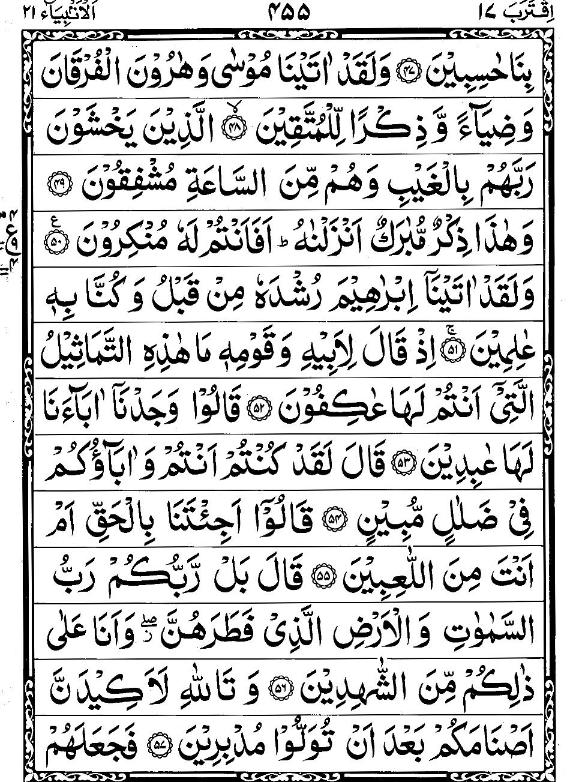 اقترب ١٧ ۴۵۵ الانبیآء ٢١
بِنَا حٰسِبِیْنَ ﴿۴۷﴾ وَلَقَدْ اٰتَیْنَا مُوْسٰی وَهٰرُوْنَ الْفُرْقَانَ
وَضِیَآءً وَّذِكْرًا لِّلْمُتَّقِیْنَ ﴿۴۸﴾ۙ الَّذِیْنَ یَخْشَوْنَ
رَبَّهُمْ بِالْغَیْبِ وَهُمْ مِّنَ السَّاعَةِ مُشْفِقُوْنَ ﴿۴۹﴾
وَهٰذَا ذِكْرٌ مُّبٰرَكٌ اَنْزَلْنٰهُ ؕ اَفَاَنْتُمْ لَهٗ مُنْكِرُوْنَ ﴿۵۰﴾ع
وَلَقَدْ اٰتَیْنَاۤ اِبْرٰهِیْمَ رُشْدَهٗ مِنْ قَبْلُ وَكُنَّا بِهٖ
عٰلِمِیْنَ ﴿۵۱﴾ۚ اِذْ قَالَ لِاَبِیْهِ وَقَوْمِهٖ مَا هٰذِهِ التَّمَاثِیْلُ
الَّتِیْۤ اَنْتُمْ لَهَا عٰكِفُوْنَ ﴿۵۲﴾ قَالُوْا وَجَدْنَاۤ اٰبَآءَنَا
لَهَا عٰبِدِیْنَ ﴿۵۳﴾ قَالَ لَقَدْ كُنْتُمْ اَنْتُمْ وَاٰبَآؤُكُمْ
فِیْ ضَلٰلٍ مُّبِیْنٍ ﴿۵۴﴾ قَالُوْۤا اَجِئْتَنَا بِالْحَقِّ اَمْ
اَنْتَ مِنَ اللّٰعِبِیْنَ ﴿۵۵﴾ قَالَ بَلْ رَّبُّكُمْ رَبُّ
السَّمٰوٰتِ وَالْاَرْضِ الَّذِیْ فَطَرَهُنَّ ۖؗ وَاَنَا عَلٰی
ذٰلِكُمْ مِّنَ الشّٰهِدِیْنَ ﴿۵۶﴾ وَتَاللّٰهِ لَاَكِیْدَنَّ
اَصْنَامَكُمْ بَعْدَ اَنْ تُوَلُّوْا مُدْبِرِیْنَ ﴿۵۷﴾ فَجَعَلَهُمْ